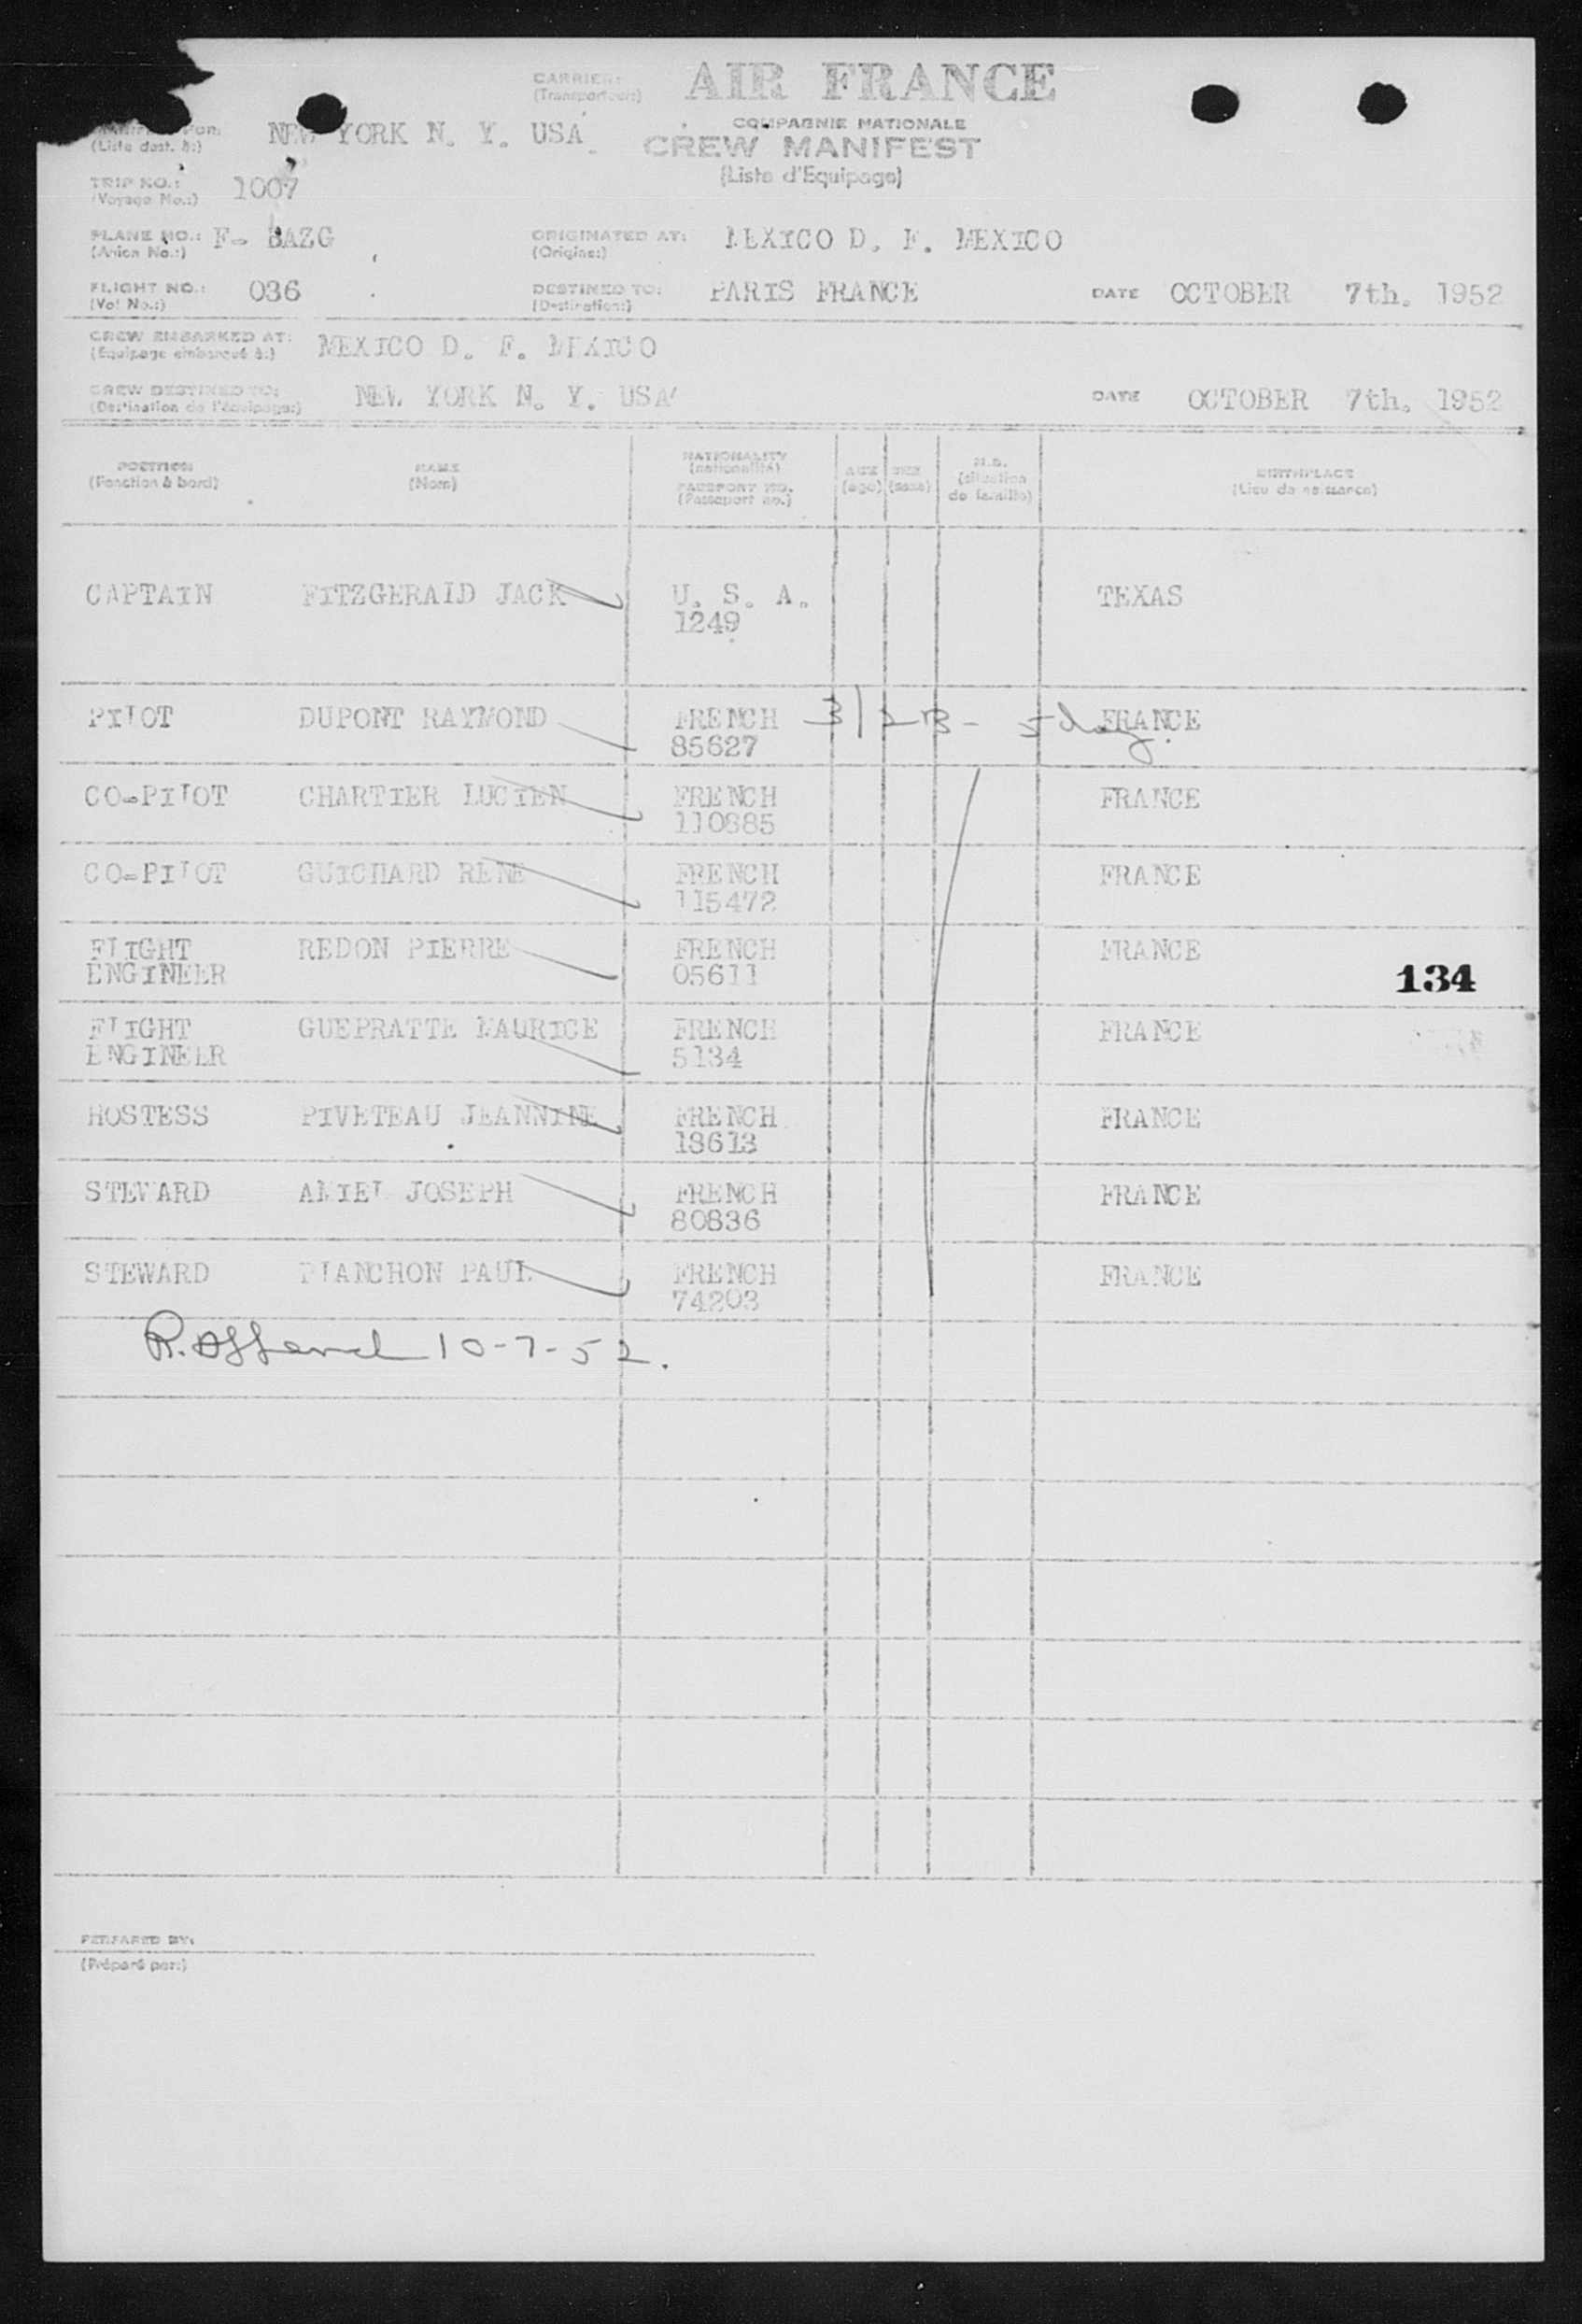 CARRIER: AIR FRANCE
(Transporteur:)
COMPAGNIE NATIONALE
NEW YORK N. Y. USA
(Liste dest. à:)
CREW MANIFEST
(Liste d'Equipage)
TRIP NO.: 1007
(Voyage No.:)
PLANE NO.: F- BAZG ORIGINATED AT: MEXICO D. F. MEXICO
(Avion No.:) (Origine:)
FLIGHT NO.: 036 DESTINED TO: PARIS FRANCE DATE OCTOBER 7th. 1952
(Vol No.:) (Destination:)
CREW EMBARKED AT: MEXICO D. F. MEXICO
(Equipage embarqué à:)
CREW DESTINED TO: NEW YORK N. Y. USA DATE OCTOBER 7th. 1952
(Destination de l'équipage:)
POSITION NAME NATIONALITY AGE SEX M.S. BIRTHPLACE
(Fonction à bord) (Nom) (nationalité) (age) (sexe) (situation de famille) (Lieu de naissance)
PASSPORT NO.
(Passeport no.)
CAPTAIN FITZGERALD JACK U. S. A. TEXAS
1249
PILOT DUPONT RAYMOND FRENCH 3/2B- 5 day FRANCE
85627
CO-PILOT CHARTIER LUCIEN FRENCH FRANCE
110885
CO-PILOT GUICHARD RENE FRENCH FRANCE
115472
FLIGHT REDON PIERRE FRENCH FRANCE
ENGINEER 05611
134
FLIGHT GUEPRATTE MAURICE FRENCH FRANCE
ENGINEER 5134
HOSTESS PIVETEAU JEANNINE FRENCH FRANCE
18613
STEWARD AMIEL JOSEPH FRENCH FRANCE
80836
STEWARD PLANCHON PAUL FRENCH FRANCE
74203
10-7-52.
PREPARED BY:
(Préparé par:)